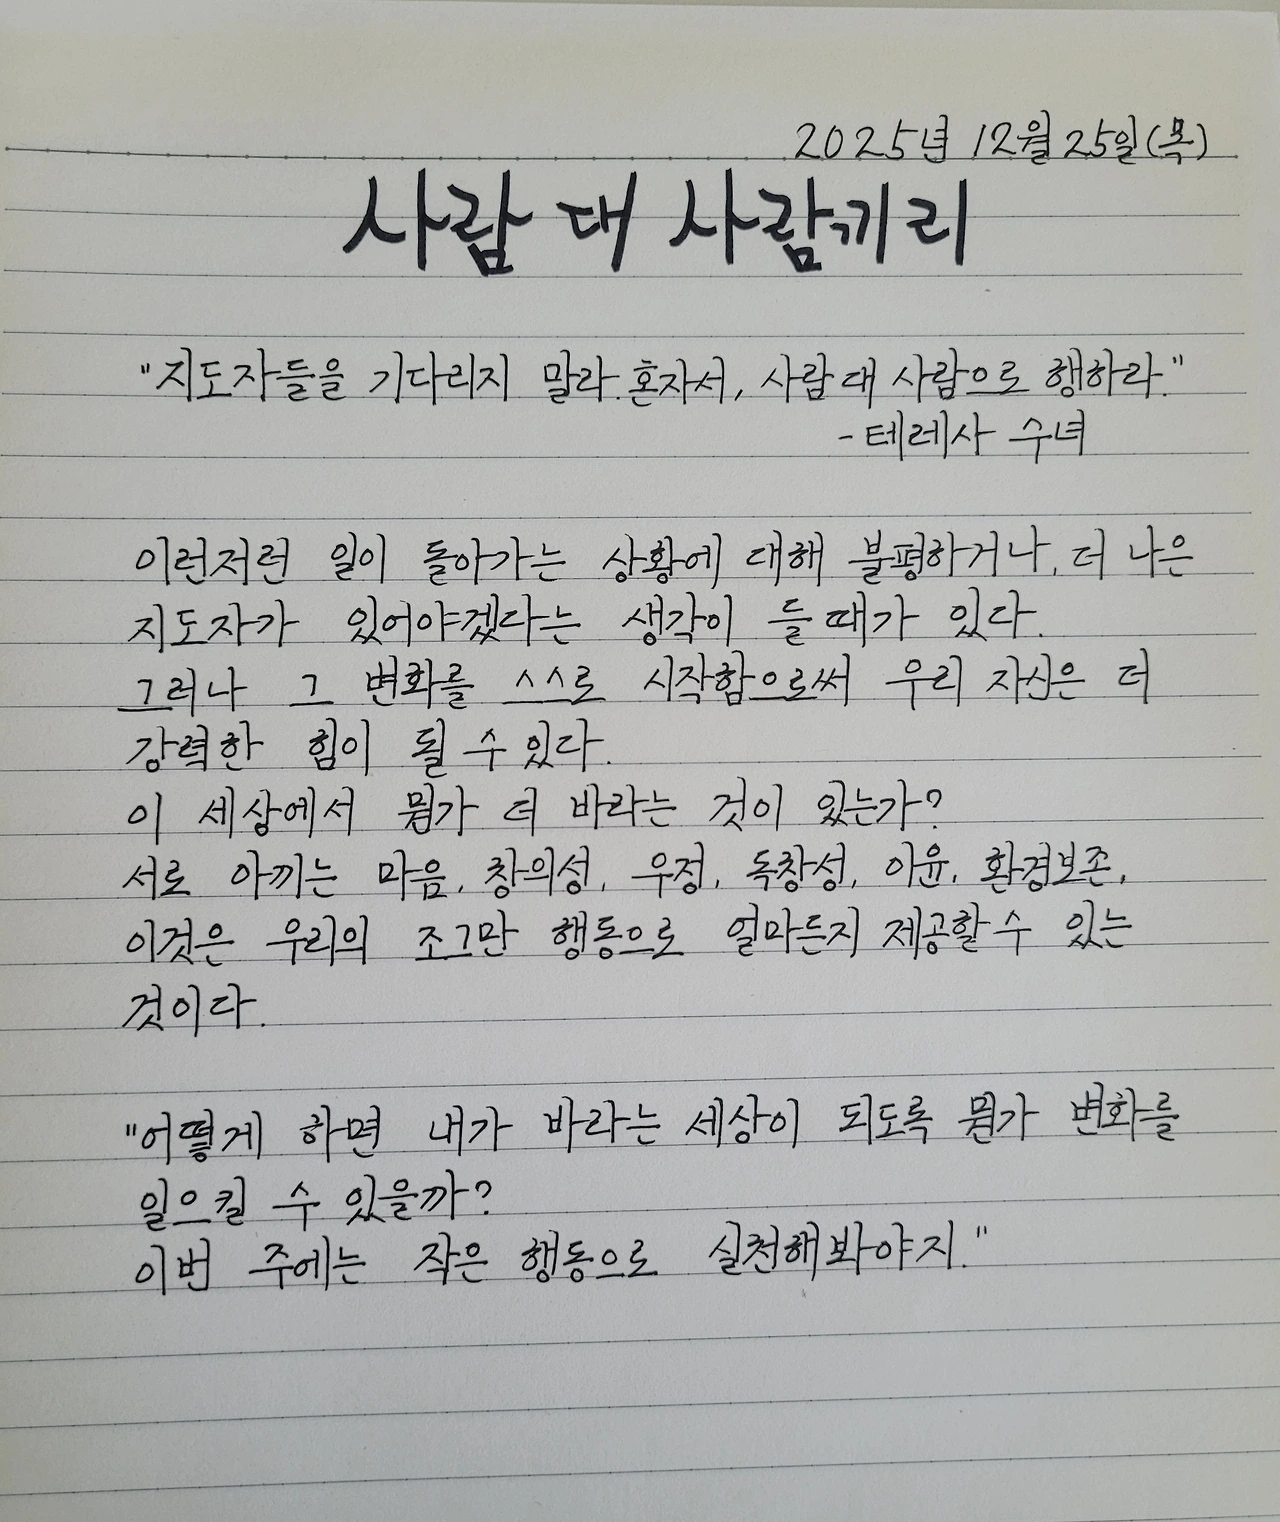 2025년 12월 25일(목)
사람 대 사람끼리
"지도자들을 기다리지 말라. 혼자서, 사람 대 사람으로 행하라."
- 테레사 수녀
이런저런 일이 돌아가는 상황에 대해 불평하거나, 더 나은
지도자가 있어야겠다는 생각이 들 때가 있다.
그러나 그 변화를 스스로 시작함으로써 우리 자신은 더
강력한 힘이 될 수 있다.
이 세상에서 뭔가 더 바라는 것이 있는가?
서로 아끼는 마음, 창의성, 우정, 독창성, 이윤, 환경보존,
이것은 우리의 조그만 행동으로 얼마든지 제공할 수 있는
것이다.
"어떻게 하면 내가 바라는 세상이 되도록 뭔가 변화를
일으킬 수 있을까?
이번 주에는 작은 행동으로 실천해봐야지."